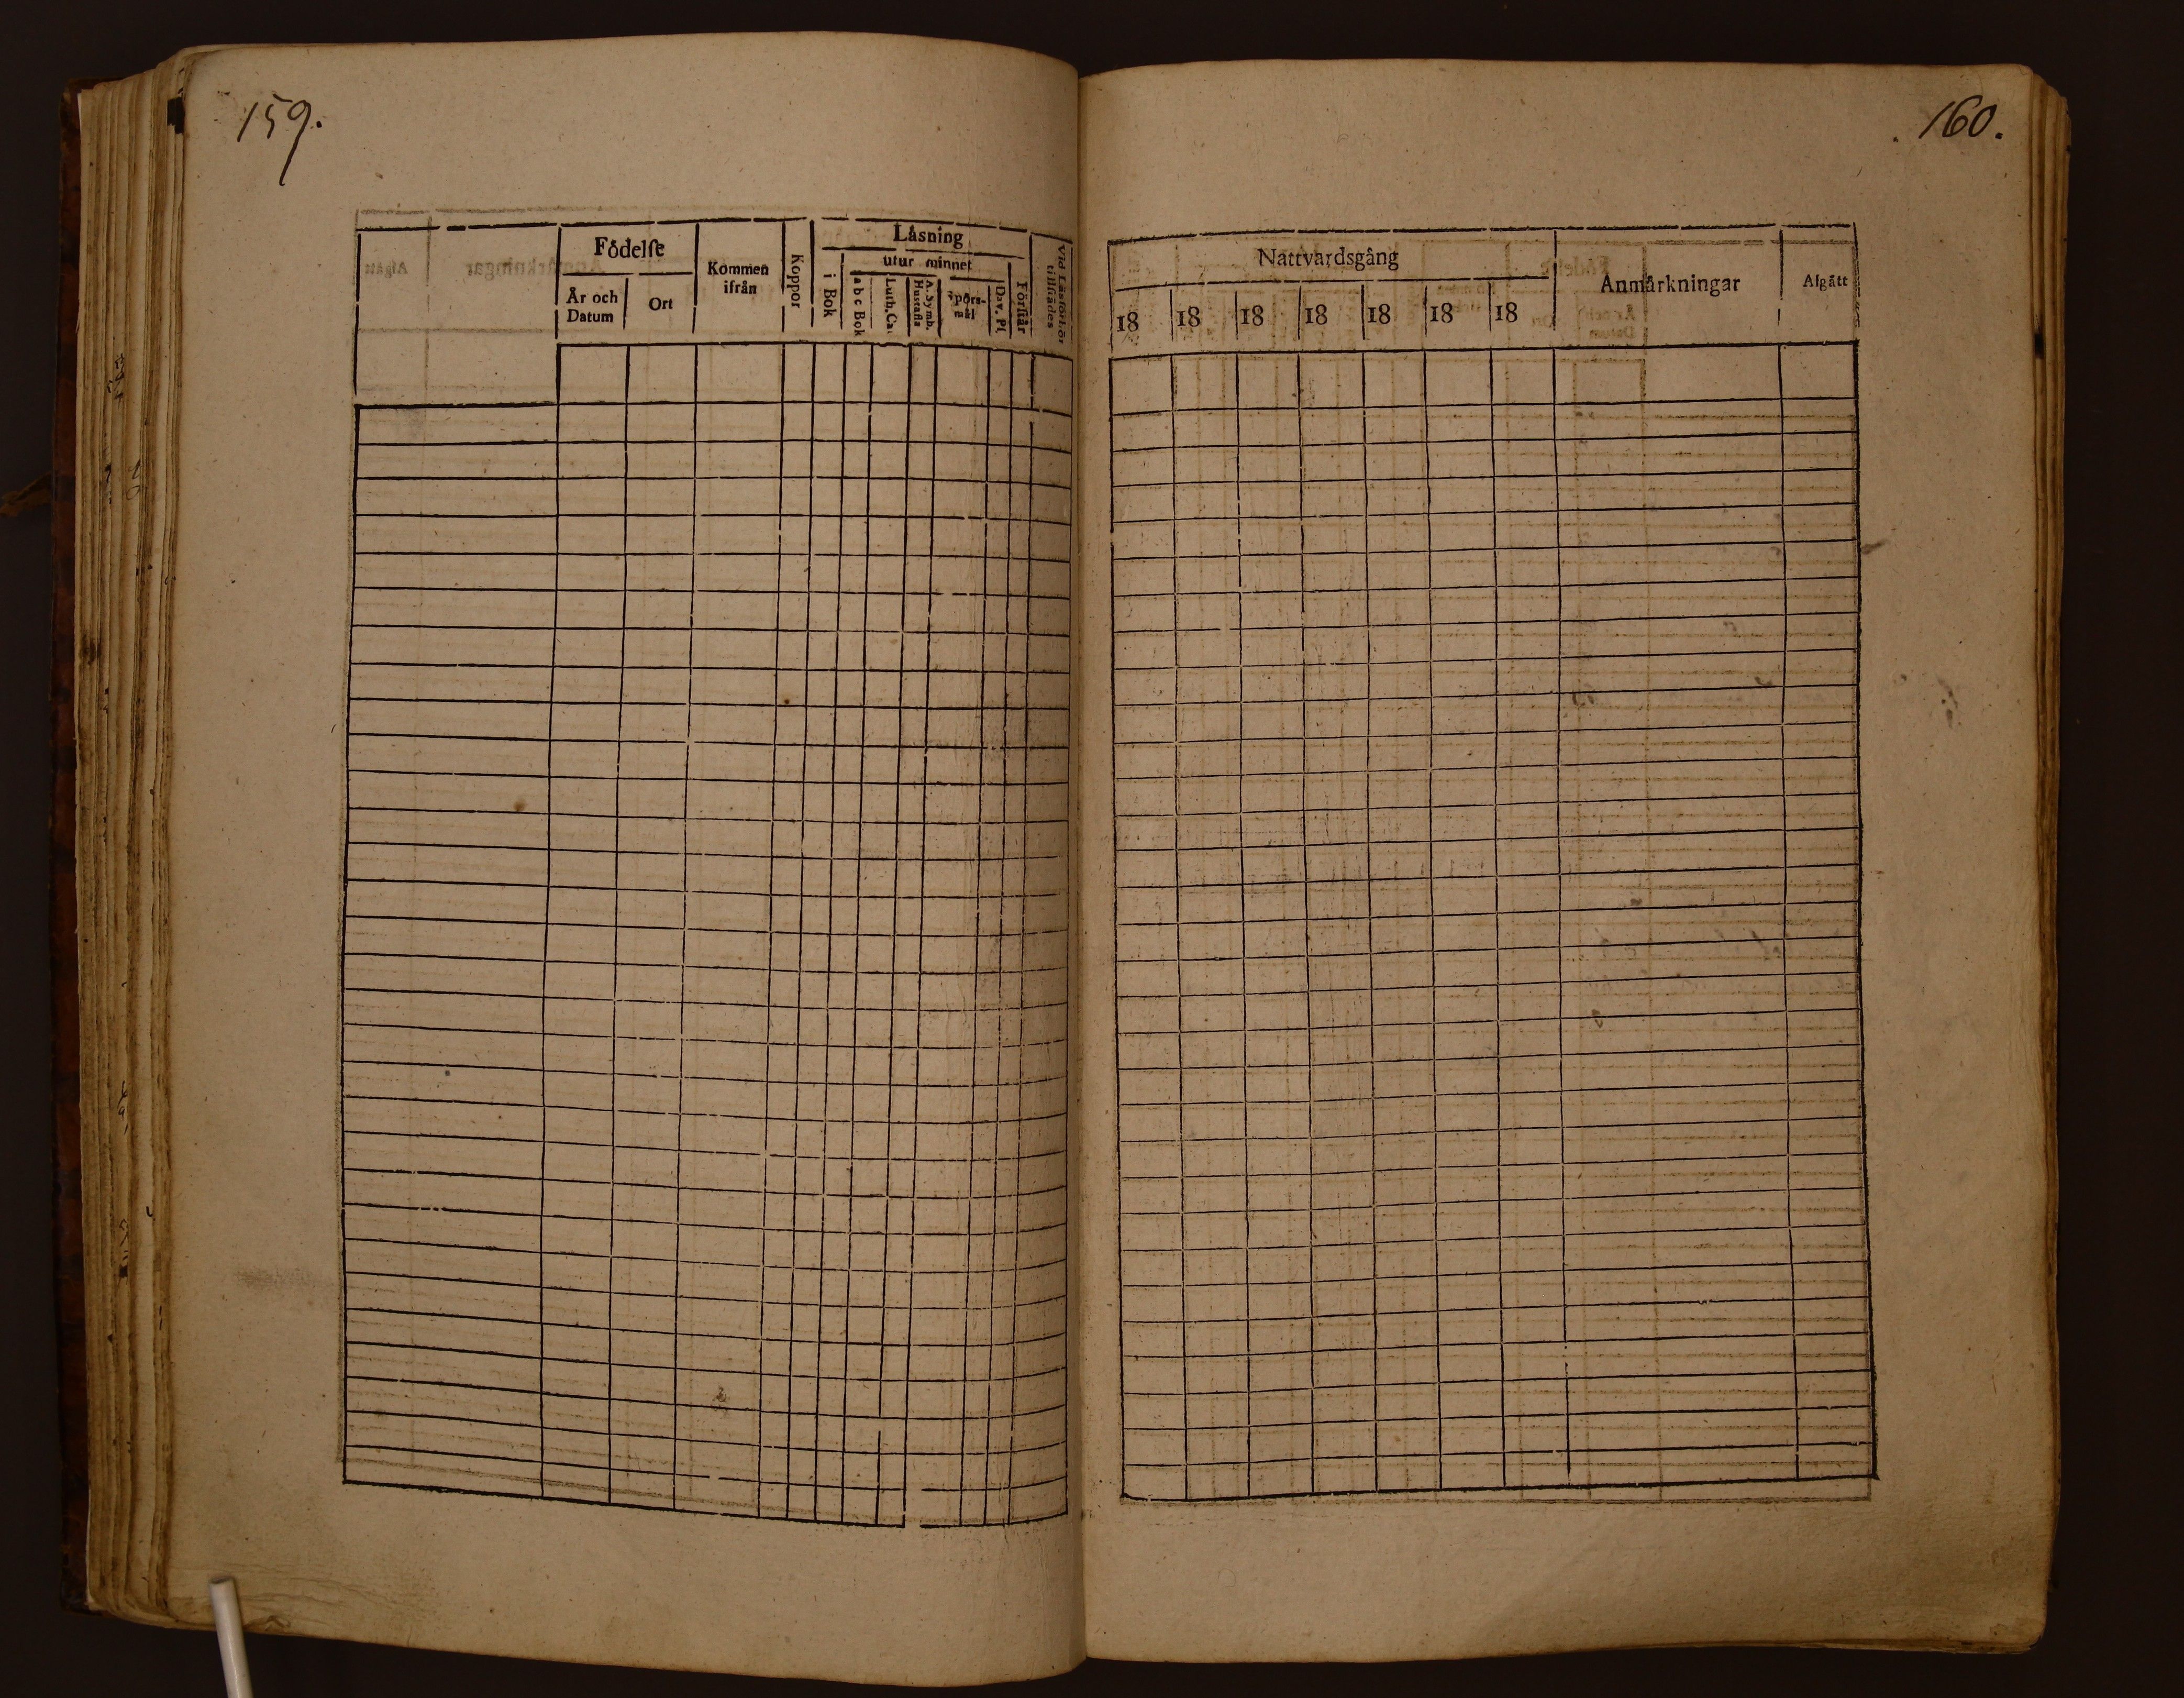 159.
160.
Födelse
År och Datum
Ort
Kommen ifrån
Koppor
Läsning
i Bok
utur minnet
a b c Bok
Luth. Ca
A. Symb. Hustafla
Spörs-mål
Dav. Ps
Förstår
Vid Läsförhör tillstädes
Nattvardsgång
18 18 18 18 18 18 18
Anmärkningar
Afgått